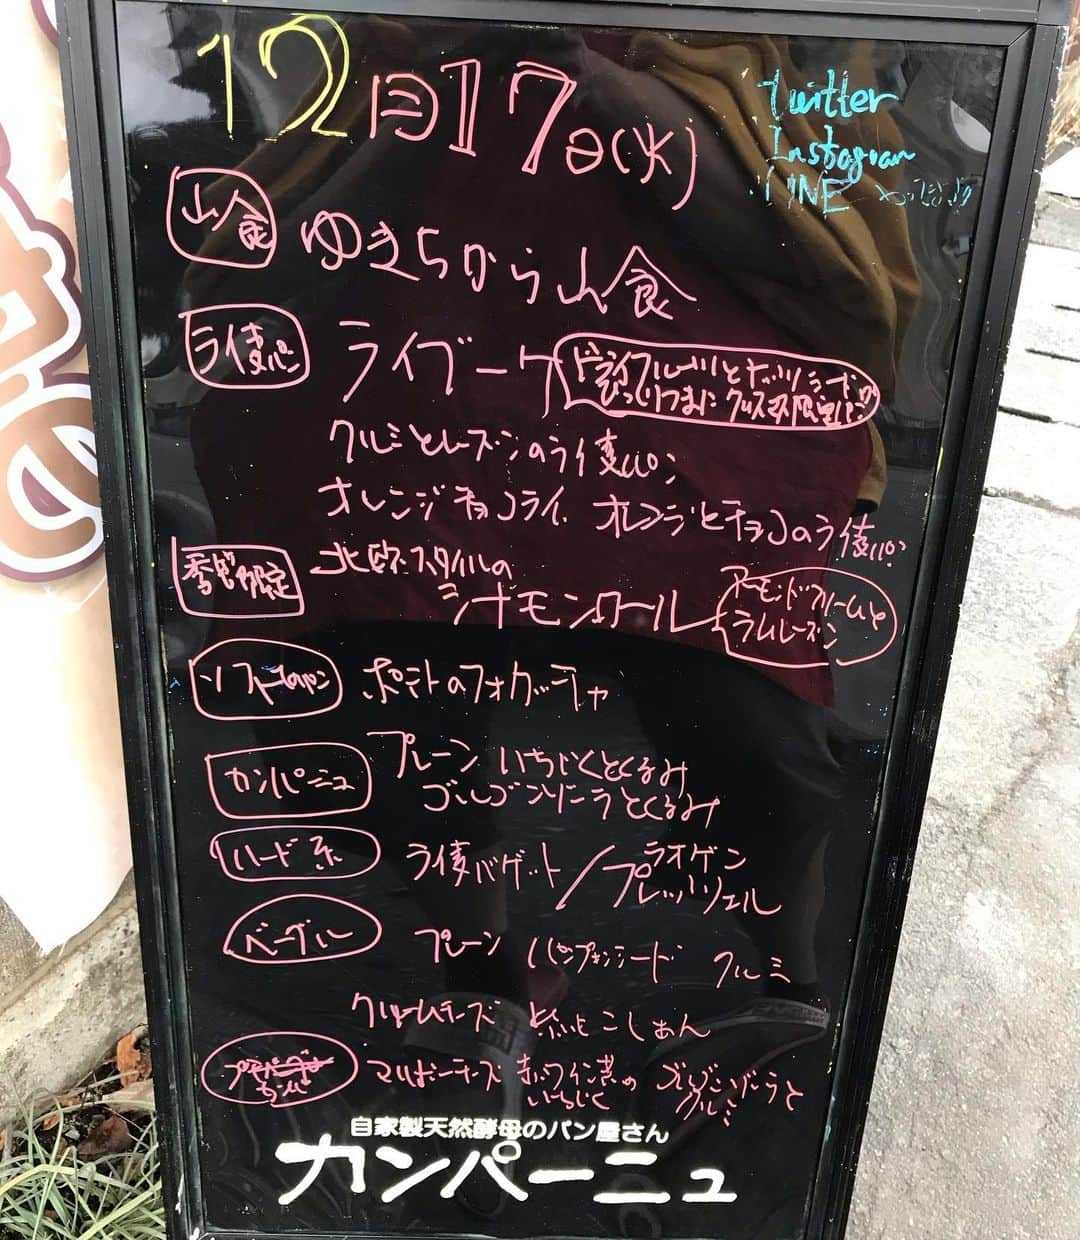 12月17日(火)
twitter
Instagram
LINE やってます
山食 ゆきちから山食
ライ麦パン ライブーケ
ドライフルーツとナッツ
クルミとレーズンのライ麦パン
オレンジチョコライ オレンジとチョコのライ麦パン
季節限定 北欧スタイルの
シナモンロール
アーモンドクリームと
ラムレーズン
ソフト ポテトのフォカッチャ
カンパーニュ プレーン いちじくとくるみ
ゴルゴンゾーラとくるみ
ハード系 ライ麦バゲット/ラオゲン
プレッツェル
ベーグル プレーン パンプキンシード クルミ
クリームチーズ こしあん
赤ワイン煮の
いちじく
ゴルゴンゾーラと
クルミ
自家製天然酵母のパン屋さん
カンパーニュ